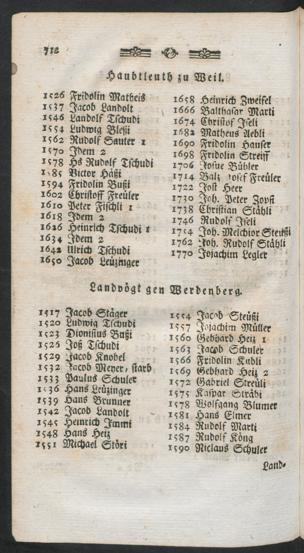 712
Haubtleuth zu Weil.
1526 Fridolin Matheis
1537 Jacob Landolt
1546 Landolf Tschudi
1554 Ludwig Bleßi
1562 Rudolf Sauter 1
1570 Idem 2
1578 Hs Rudolf Tschudi
1585 Victor Häßi
1594 Fridolin Bußi
1602 Christoff Freuler
1610 Peter Fischli 1
1618 Idem 2
1626 Heinrich Tschudi 1
1634 Idem 2
1642 Ulrich Tschudi
1650 Jacob Leüzinger
1658 Heinrich Zweifel
1666 Balthasar Marti
1674 Christof Iseli
1682 Matheus Aebli
1690 Fridolin Hauser
1698 Fridolin Streiff
1706 Josue Bähler
1714 Balz Josef Freüler
1722 Jost Heer
1730 Joh. Peter Zopfi
1738 Christian Stähli
1746 Rudolf Iseli
1754 Joh. Melchior Steüßi
1762 Joh. Rudolf Stähli
1770 Joachim Legler
Landvögt gen Werdenberg.
1517 Jacob Stäger
1520 Ludwig Tschudi
1523 Dionisius Bußi
1526 Joß Tschudi
1529 Jacob Knobel
1532 Jacob Meyer, starb
1533 Paulus Schuler
1536 Hans Leüzinger
1539 Hans Brunner
1542 Jacob Landolt
1545 Heinrich Jimmi
1548 Hans Heiz
1551 Michael Störi
1554 Jacob Steüßi
1557 Joachim Müller
1560 Gebhart Heiz 1
1563 Jacob Schuler
1566 Fridolin Kubli
1569 Gebhart Heiz 2
1572 Gabriel Streüli
1575 Kaspar Sträbi
1578 Wolfgang Blumer
1581 Hans Elmer
1584 Rudolf Marti
1587 Rudolf Köng
1590 Niclaus Schuler
Land-